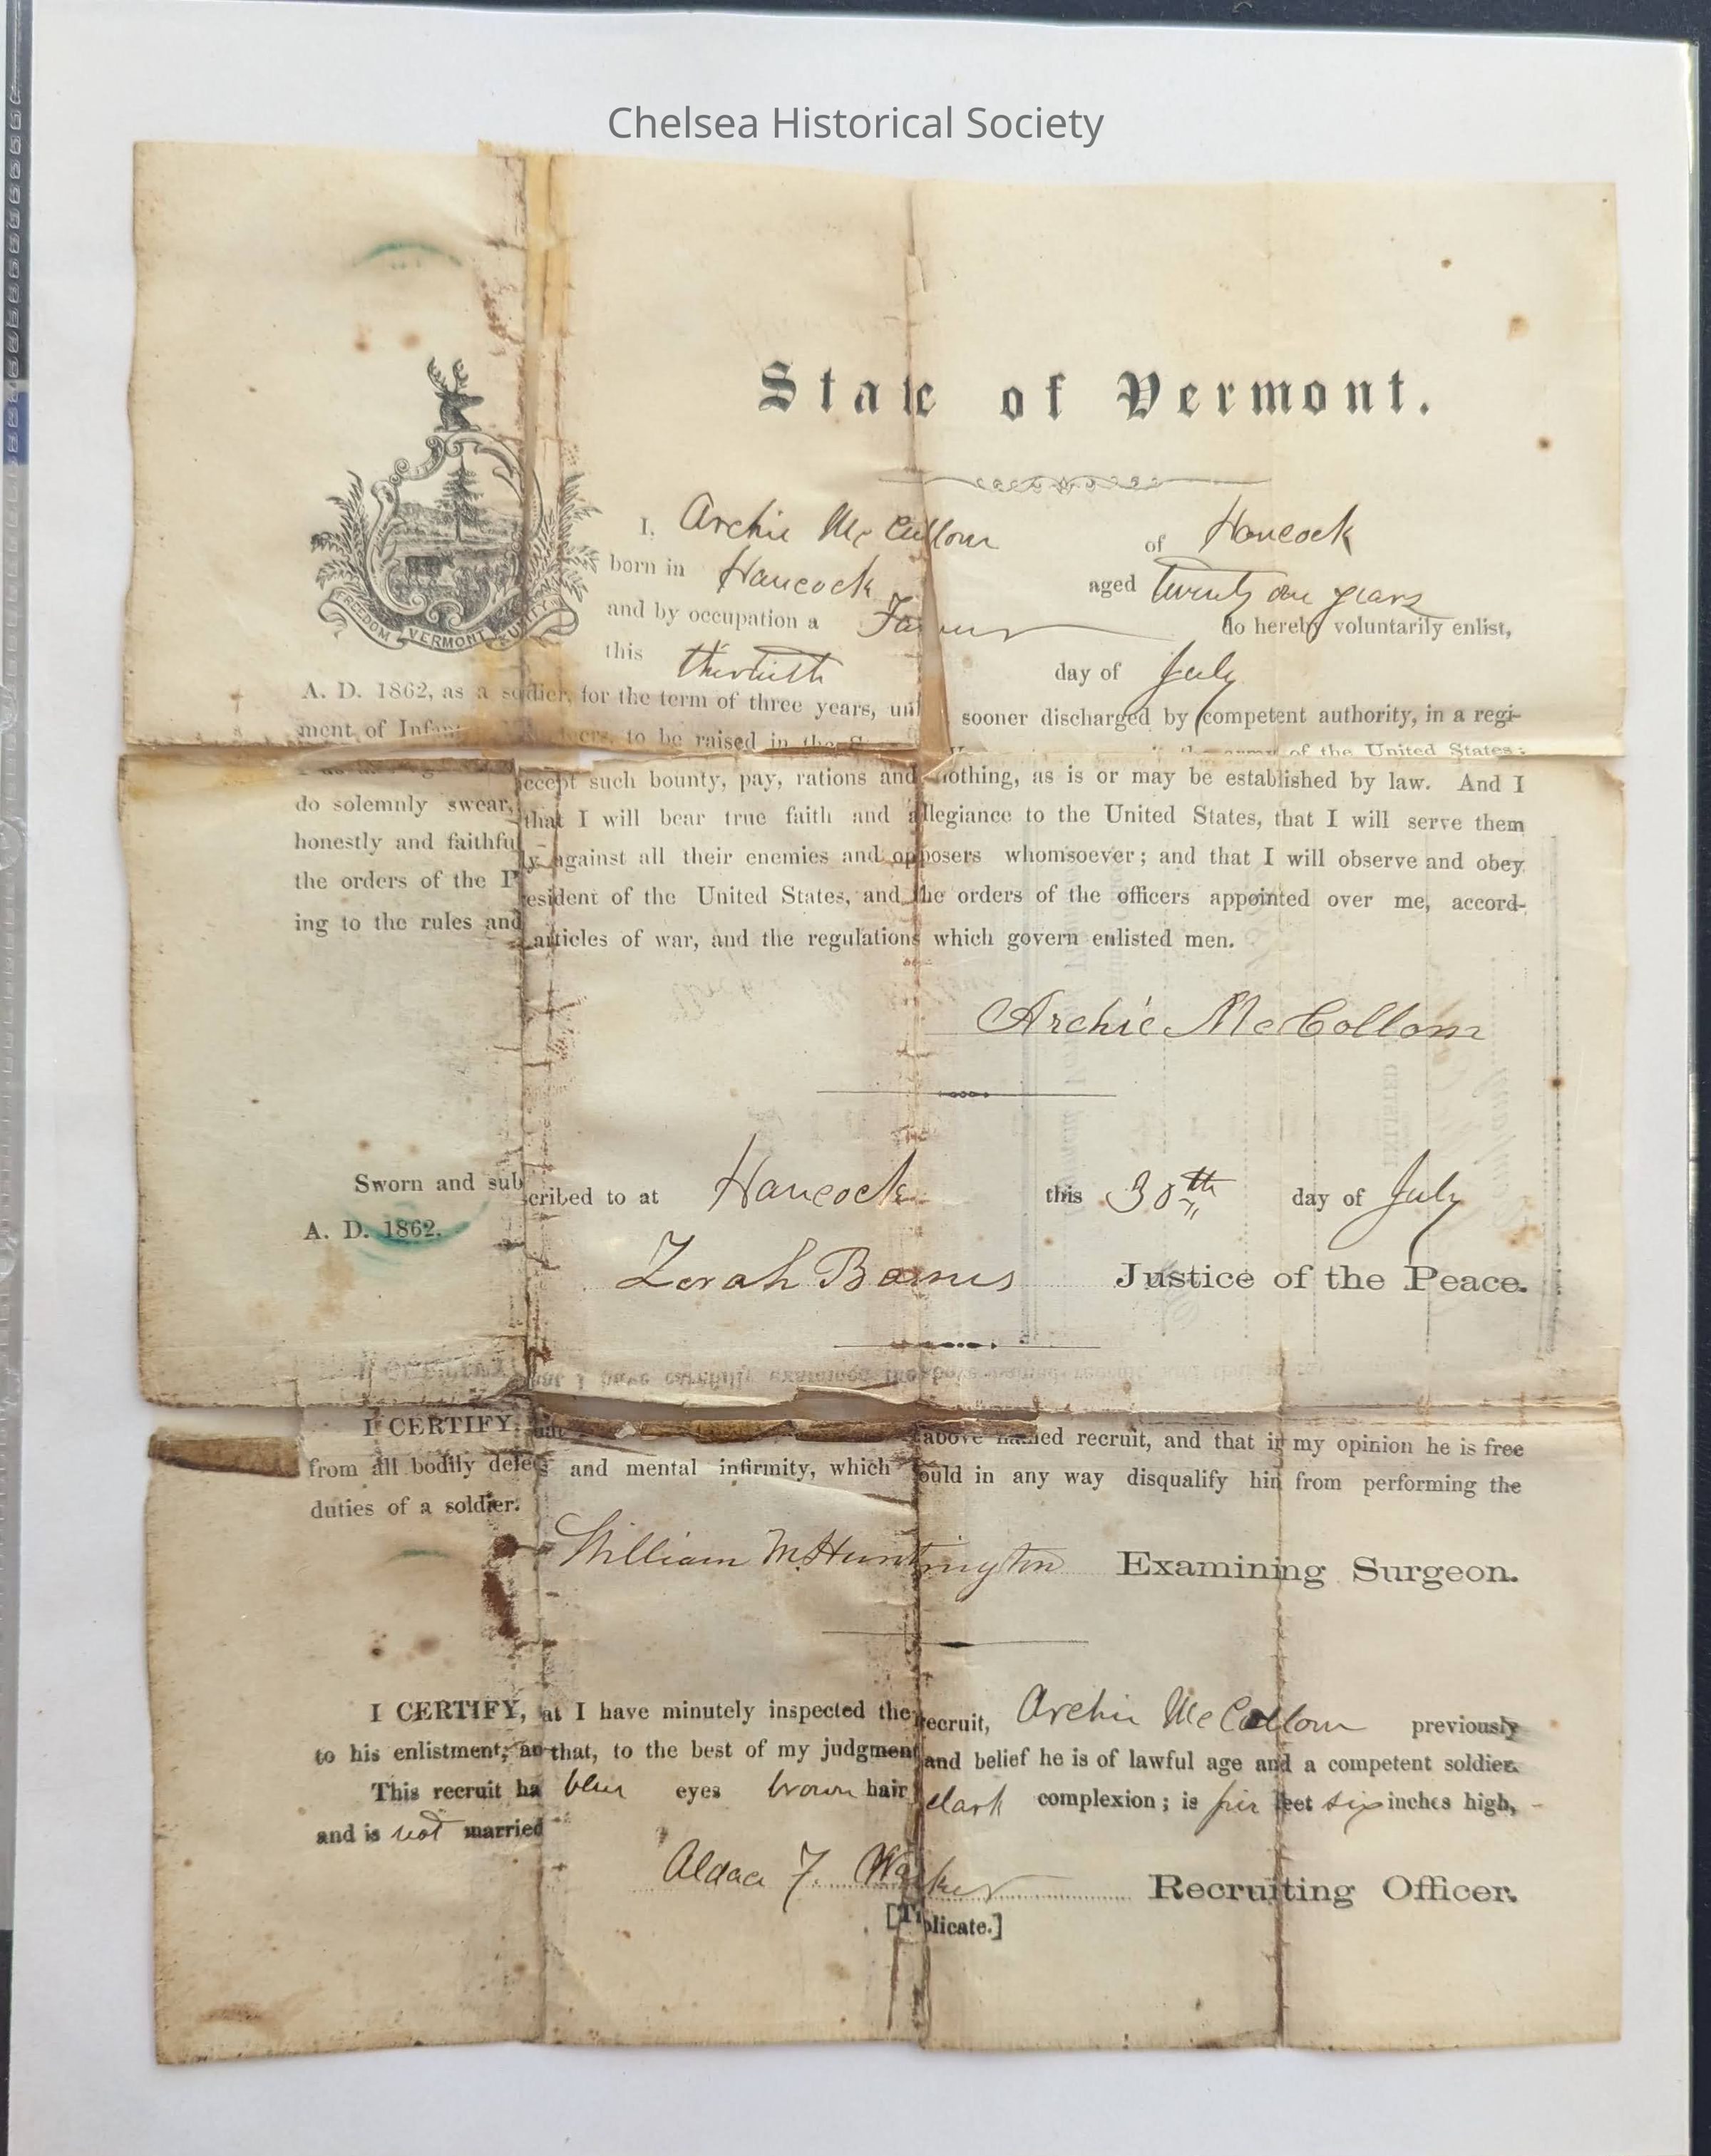 Chelsea Historical Society
State of Vermont.
FREEDOM VERMONT & UNITY
I, Archie McCullom of Hancock
born in Hancock aged twenty one years
and by occupation a Farmer do hereby voluntarily enlist,
this thirtieth day of July
A. D. 1862, as a soldier, for the term of three years, unl sooner discharged by competent authority, in a regi-
ment of to be raised in the army of the United States;
accept such bounty, pay, rations and clothing, as is or may be established by law. And I
do solemnly swear, that I will bear true faith and allegiance to the United States, that I will serve them
honestly and faithfully against all their enemies and opposers whomsoever; and that I will observe and obey
the orders of the President of the United States, and the orders of the officers appointed over me, accord-
ing to the rules and articles of war, and the regulations which govern enlisted men.
Archie McCollom
Sworn and subscribed to at Hancock this 30th day of July
A. D. 1862.
Zerah Barnes Justice of the Peace.
I CERTIFY, above named recruit, and that in my opinion he is free
from all bodily defects and mental infirmity, which would in any way disqualify him from performing the
duties of a soldier.
William M Huntington Examining Surgeon.
I CERTIFY, at I have minutely inspected the recruit, Archie McCullom previously
to his enlistment; and that, to the best of my judgment and belief he is of lawful age and a competent soldier.
This recruit ha blue eyes brown hair dark complexion; is five feet six inches high,
and is not married
Aldace F. Walker Recruiting Officer.
[Triplicate.]